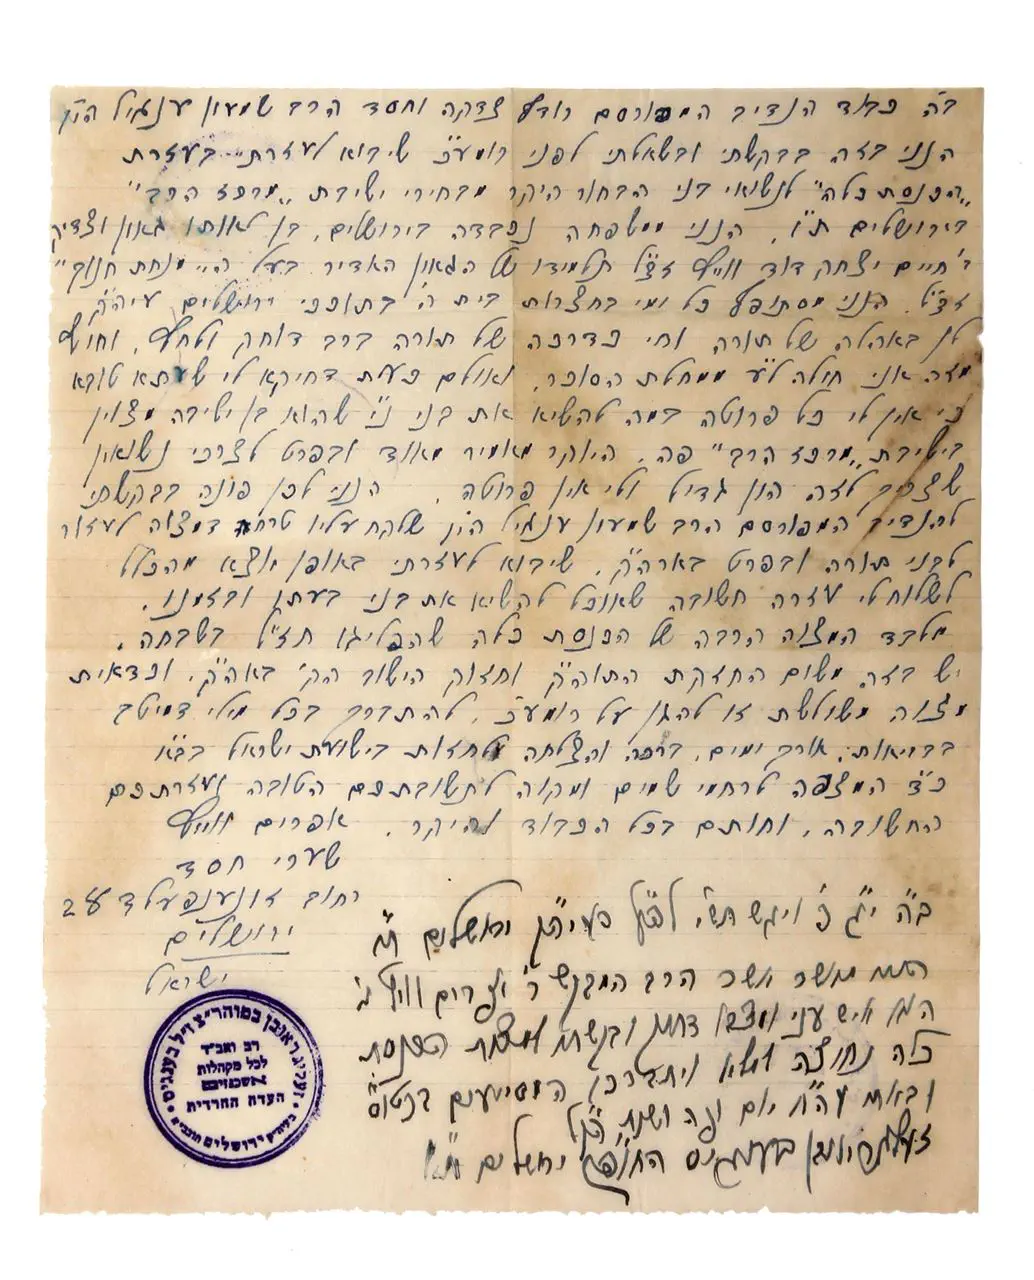 ב"ה כבוד הנדיב המפורסם רודף צדקה וחסד הרב שמעון ענגיל הי"ו
הנני בזה בבקשתי ובשאלתי לפני רומעכ"ת שיבוא לעזרתי בעזרת
"הכנסת כלה" לנשואי בני הבחור היקר מבחירי ישיבת "מרכז הרב"
בירושלים ת"ו. הנני ממשפחה נכבדה בירושלים, בן לאותו גאון וצדיק
ר' חיים יצחק דוד ווייס זצ"ל תלמידו של הגאון האדיר בעל ה"מנחת חנוך"
זצ"ל. הנני מסתופף כל ימי בחצרות בית ה' בתוככי ירושלים עיה"ק
לן באהלה של תורה וחי כדרכה של תורה ברב דוחק ולחץ, וחוץ
מזה אני חולה ל"ע ממחלת הסוכר, ואולם כעת דחיקא לי שעתא טובא
כי אין לי כל פרוטה במה להשיא את בני נ"י שהוא בן ישיבה מצוין
בישיבת "מרכז הרב" פה. היוקר מאמיר מאוד ובפרט לצרכי נשואין
שצריך לזה הון גדול ולי אין פרוטה. הנני לכן פונה בבקשתי
להנדיב המפורסם הרב שמעון ענגיל הי"ו שלקח עליו טרחא דמצוה לעזור
לבני תורה ובפרט בארה"ק, שיבוא לעזרתי באופן יוצא מהכלל
לשלוח לי עזרה חשובה שאוכל להשיא את בני בעתו ובזמנו.
מלבד המצוה הרבה של הכנסת כלה שהפליגו חז"ל בשבחה,
יש בזה משום החזקת התוה"ק וחזוק הישוב הק' באה"ק. וכדאית
מצוה משולשת זו להגן על רומעכ"ת, להתברך בכל מילי דמיטב
בבריאות, אורך ימים, ברכה והצלחה ולחזות בישועת ישראל בב"א
כ"ד המצפה לרחמי שמים ומקוה לתשובתכם הטובה ועזרתכם
החשובה, וחותם בכל הכבוד והיקר, אפרים ווייס
שערי חסד
רחוב זוננפעלד 28
ירושלים
ישראל
ב"ה י"ג ויגש לפ"ק פעיה"ק ירושלים ת"ו
הנני מאשר אשר הרב המבקש ר' אפרים ווייס נ"י
הוא איש עני ומצבו דחוק ובקשתו למצות הכנסת
כלה נחוצה ויתברכו המסייעים בכט"ס
ובאתי עה"ח יום הנ"ל
זעליג ראובן בענגיס החופ"ק ירושלים ת"ו
זעליג ראובן במוהרי"צ ז"ל בענגיס
רב ואב"ד
לכל מקהלות
אשכנזים
העדה החרדית
ירושלים